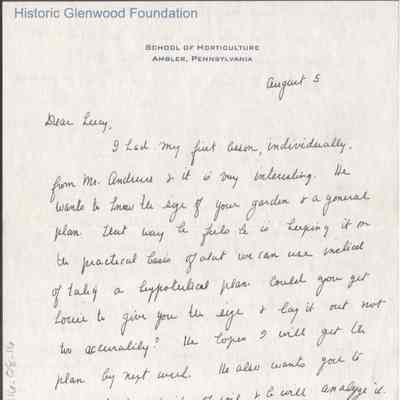 Historic Glenwood Foundation
SCHOOL OF HORTICULTURE
AMBLER, PENNSYLVANIA
August 5
Dear Lucy,
I had my first lesson, individually,
from Mr. Andrews & it is very interesting. He
wants to know the size of your garden & a general
plan. That way he feels he is keeping it on
the practical basis of what we can use instead
of taking a hypothetical plan. Could you get
Louie to give you the size & lay it out not
too accurately? He hopes I will get the
plan by next week. He also wants you to
& he will analyze it.
16.08.16